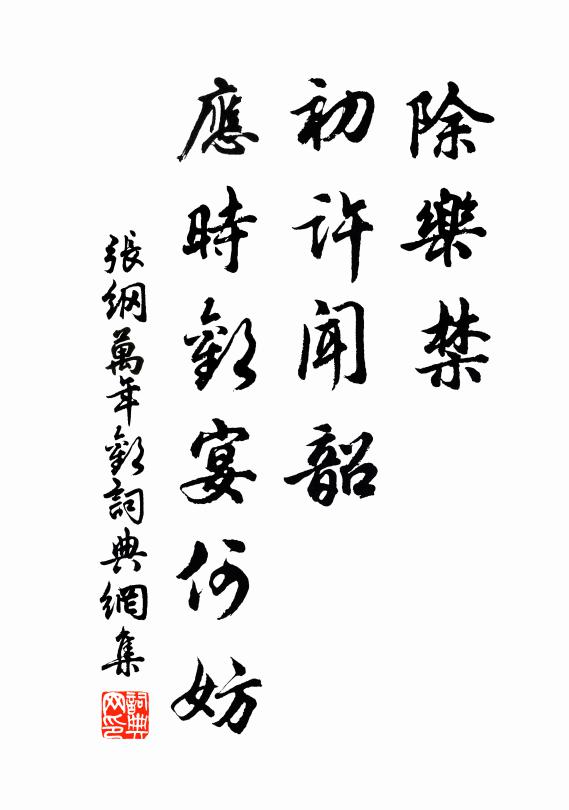 除樂禁
初許聞韶
應時歡宴何妨
張綱萬年歡詞典網集
詞典网印